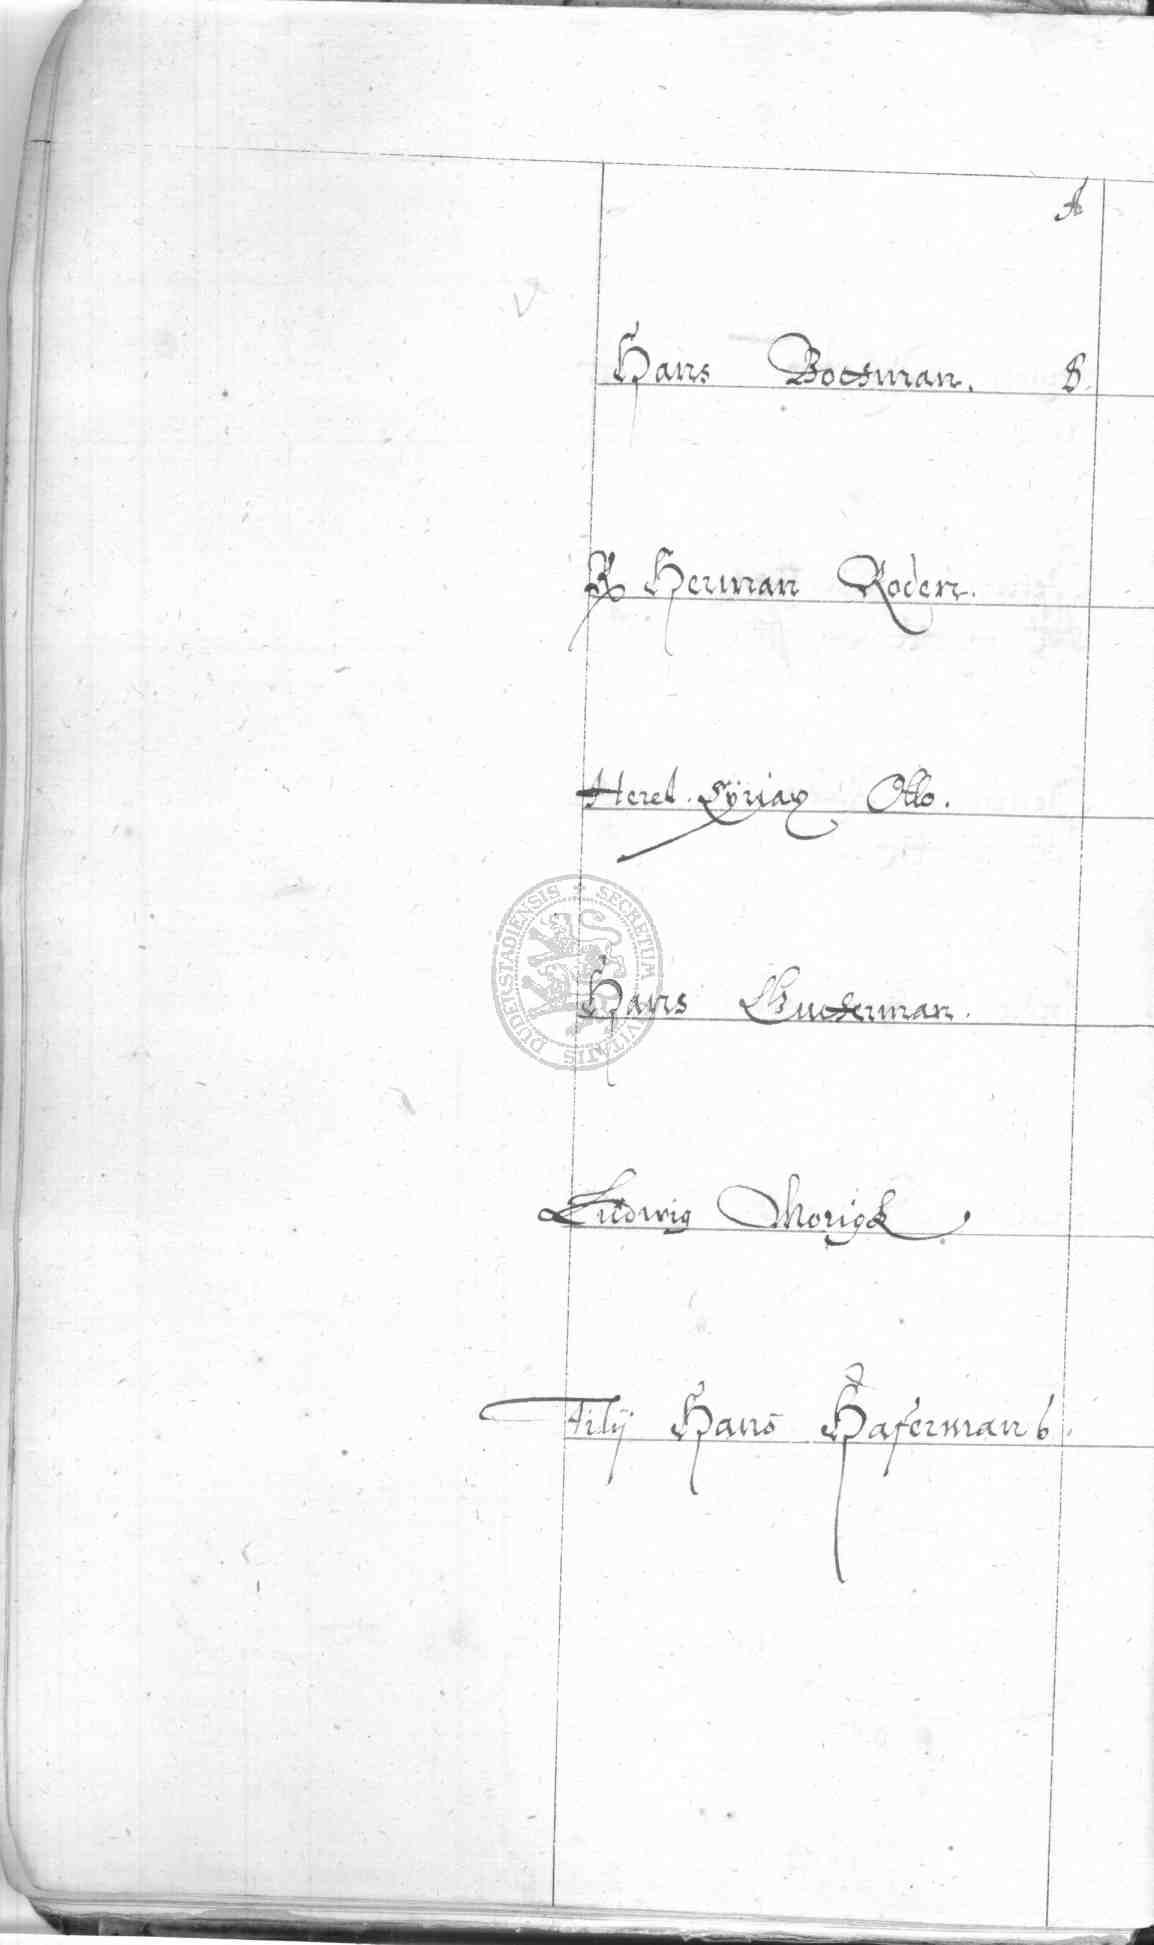 A
Hans Bocksman. 8.
R Herman Roden.
Hered. Cÿriax Otto.
SECRETUM CIVITATIS DUDERSTADIENSIS
Hans Guckerman.
Ludwig
Filij Hans Hafermans.